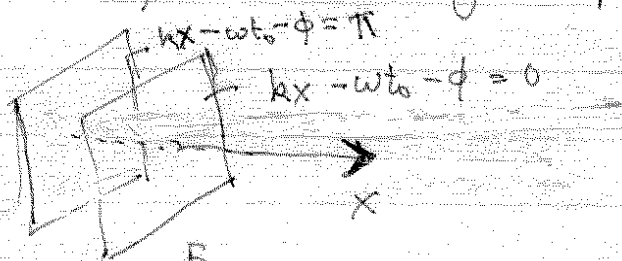 kx - ωt₀ - ϕ = π
kx - ωt₀ - ϕ = 0
X